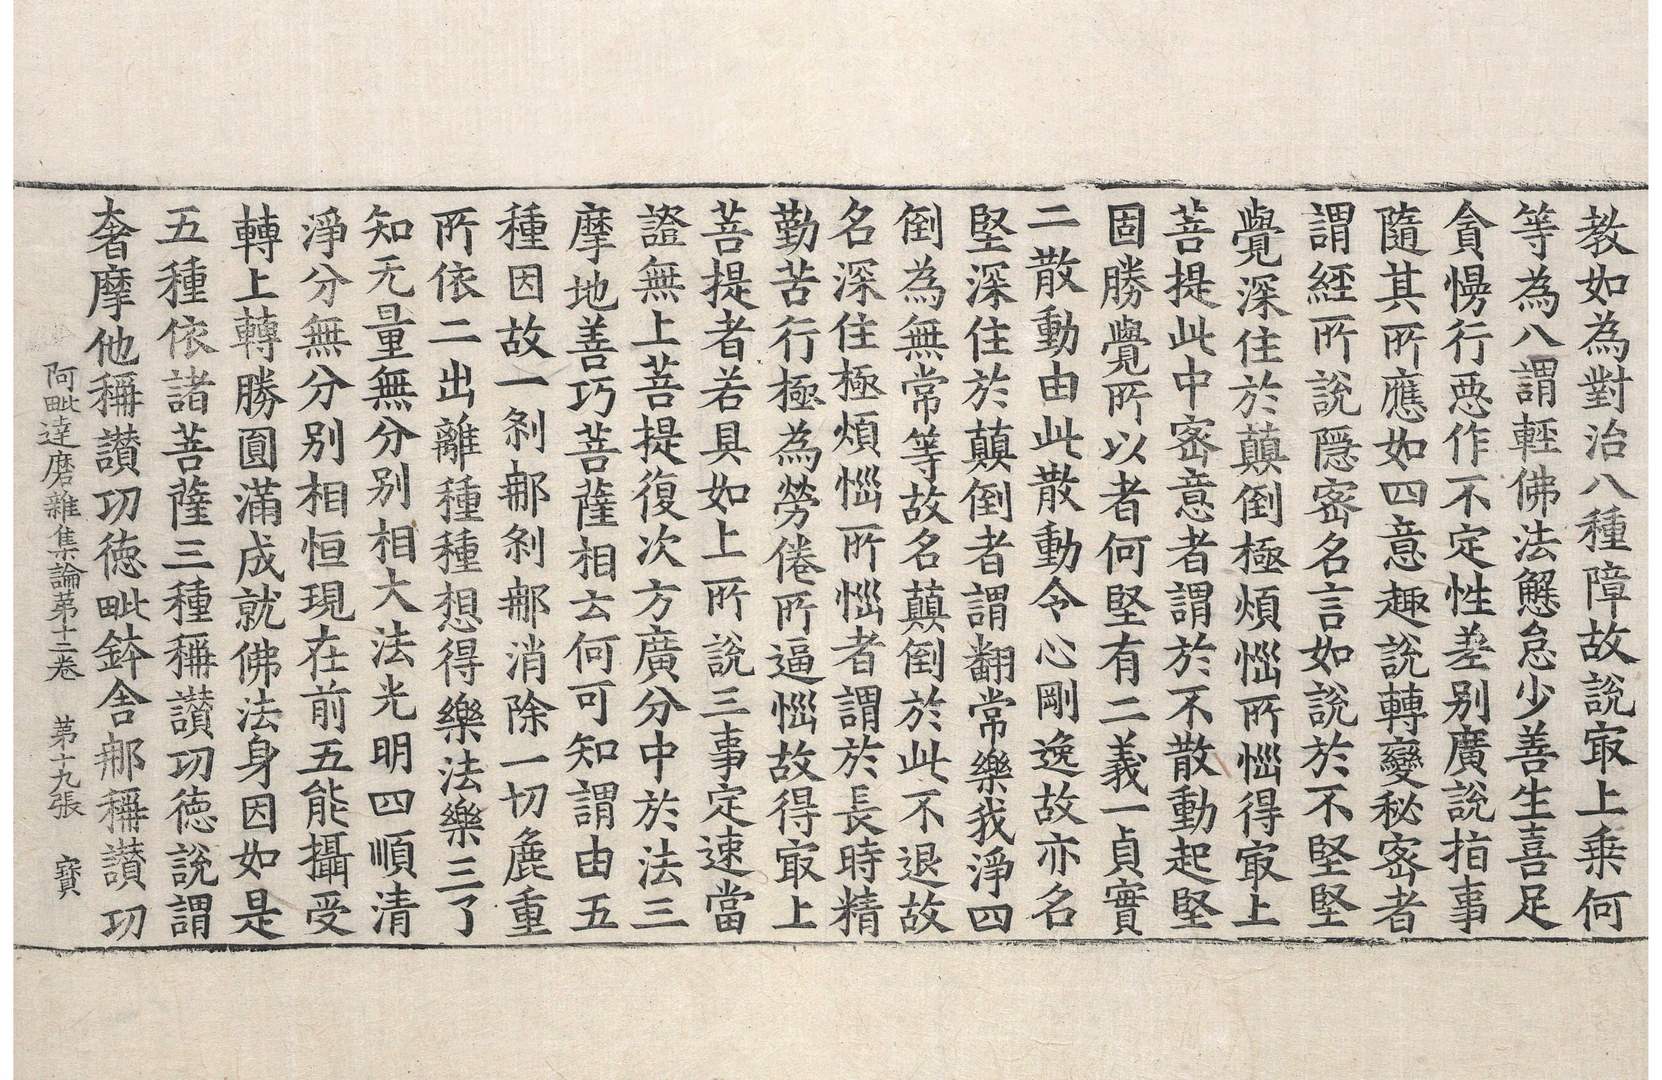 教如為對治八種障故說冣上乗何
等為八謂輕佛法懈怠少善生喜足
貪慢行惡作不定性差別廣說指事
隨其所應如四意趣說轉變秘密者
謂經所說隱密名言如說於不堅堅
覺深住於顛倒極煩惱所惱得冣上
菩提此中密意者謂於不散動起堅
固勝覺所以者何堅有二義一貞實
二散動由此散動令心剛逸故亦名
堅深住於顛倒者謂翻常樂我淨四
倒為無常等故名顛倒於此不退故
名深住極煩惱所惱者謂於長時精
勤苦行極為勞倦所逼惱故得冣上
菩提者若具如上所說三事定速當
證無上菩提復次方廣分中於法三
摩地善巧菩薩相云何可知謂由五
種因故一剎那剎那消除一切麁重
所依二出離種種想得樂法樂三了
知无量無分別相大法光明四順清
淨分無分別相恒現在前五能攝受
轉上轉勝圓滿成就佛法身因如是
五種依諸菩薩三種稱讚功德說謂
奢摩他稱讚功德毗鉢舍那稱讚功
阿毗達磨雜集論第十二卷　第十九張　寳